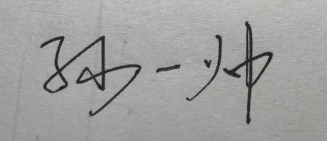 孙一帅